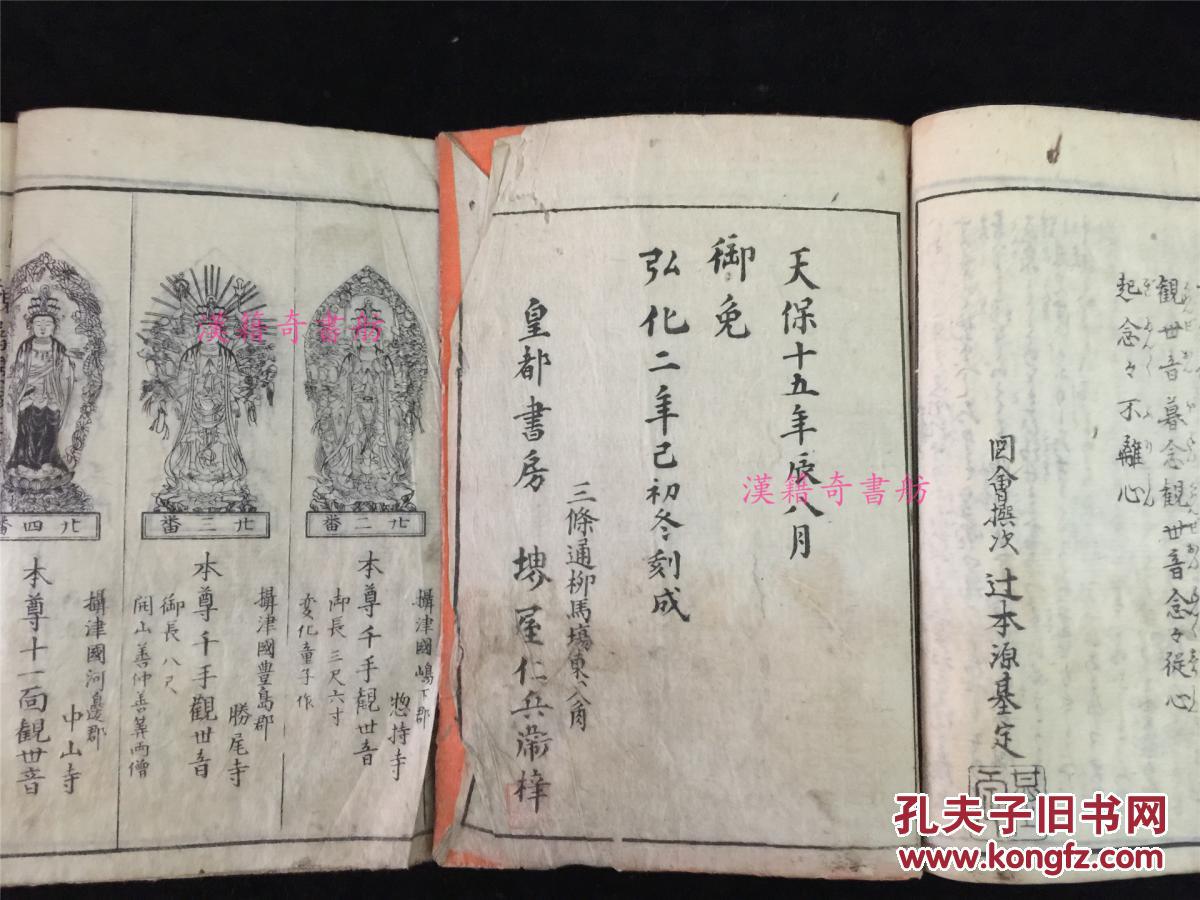 起念々不離心
観世音暮念観世音念々従心
図會撰次 辻本源基定
天保十五年辰八月
御免
弘化二年巳初冬刻成
三條通柳馬場東へ入角
皇都書房 堺屋仁兵衛梓
攝津國嶋下郡
惣持寺
本尊千手觀世音
御長三尺六寸
変化童子作
廿二番
攝津國豊島郡
勝尾寺
本尊千手觀世音
御長八尺
開山善仲善筭両僧
廿三番
攝津國河邊郡
中山寺
本尊十一面觀世音
廿四番
漢籍奇書舫
漢籍奇書舫
孔夫子旧书网
www.kongfz.com